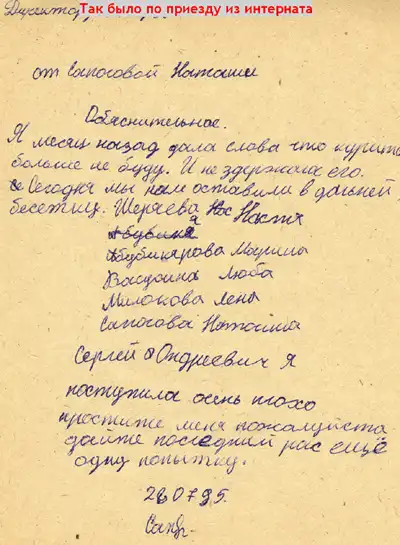 Так было по приезду из интерната
Директору
от Сапоговой Наташи
Обяснительное.
Я месяц назад дала слова что курить
больше не буду. И не здержала его.
Сегодня мы там оставили в дальней
беседки. Ширяева Нас Настя
Абубикярова Марина
Васдоина Люба
Милокова Лена
Сапогова Наташа
Сергей Ондреевич я
поступила осень плохо
простите меня пожалуйста
дайте последний рас ещё
одну попытку.
26.07.95.